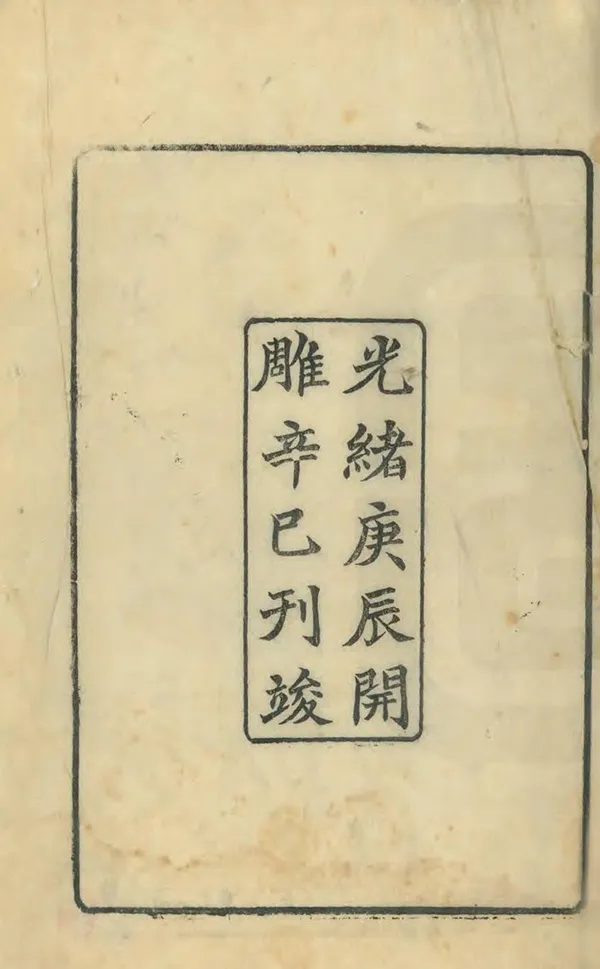 光緒庚辰開
雕辛巳刊竣